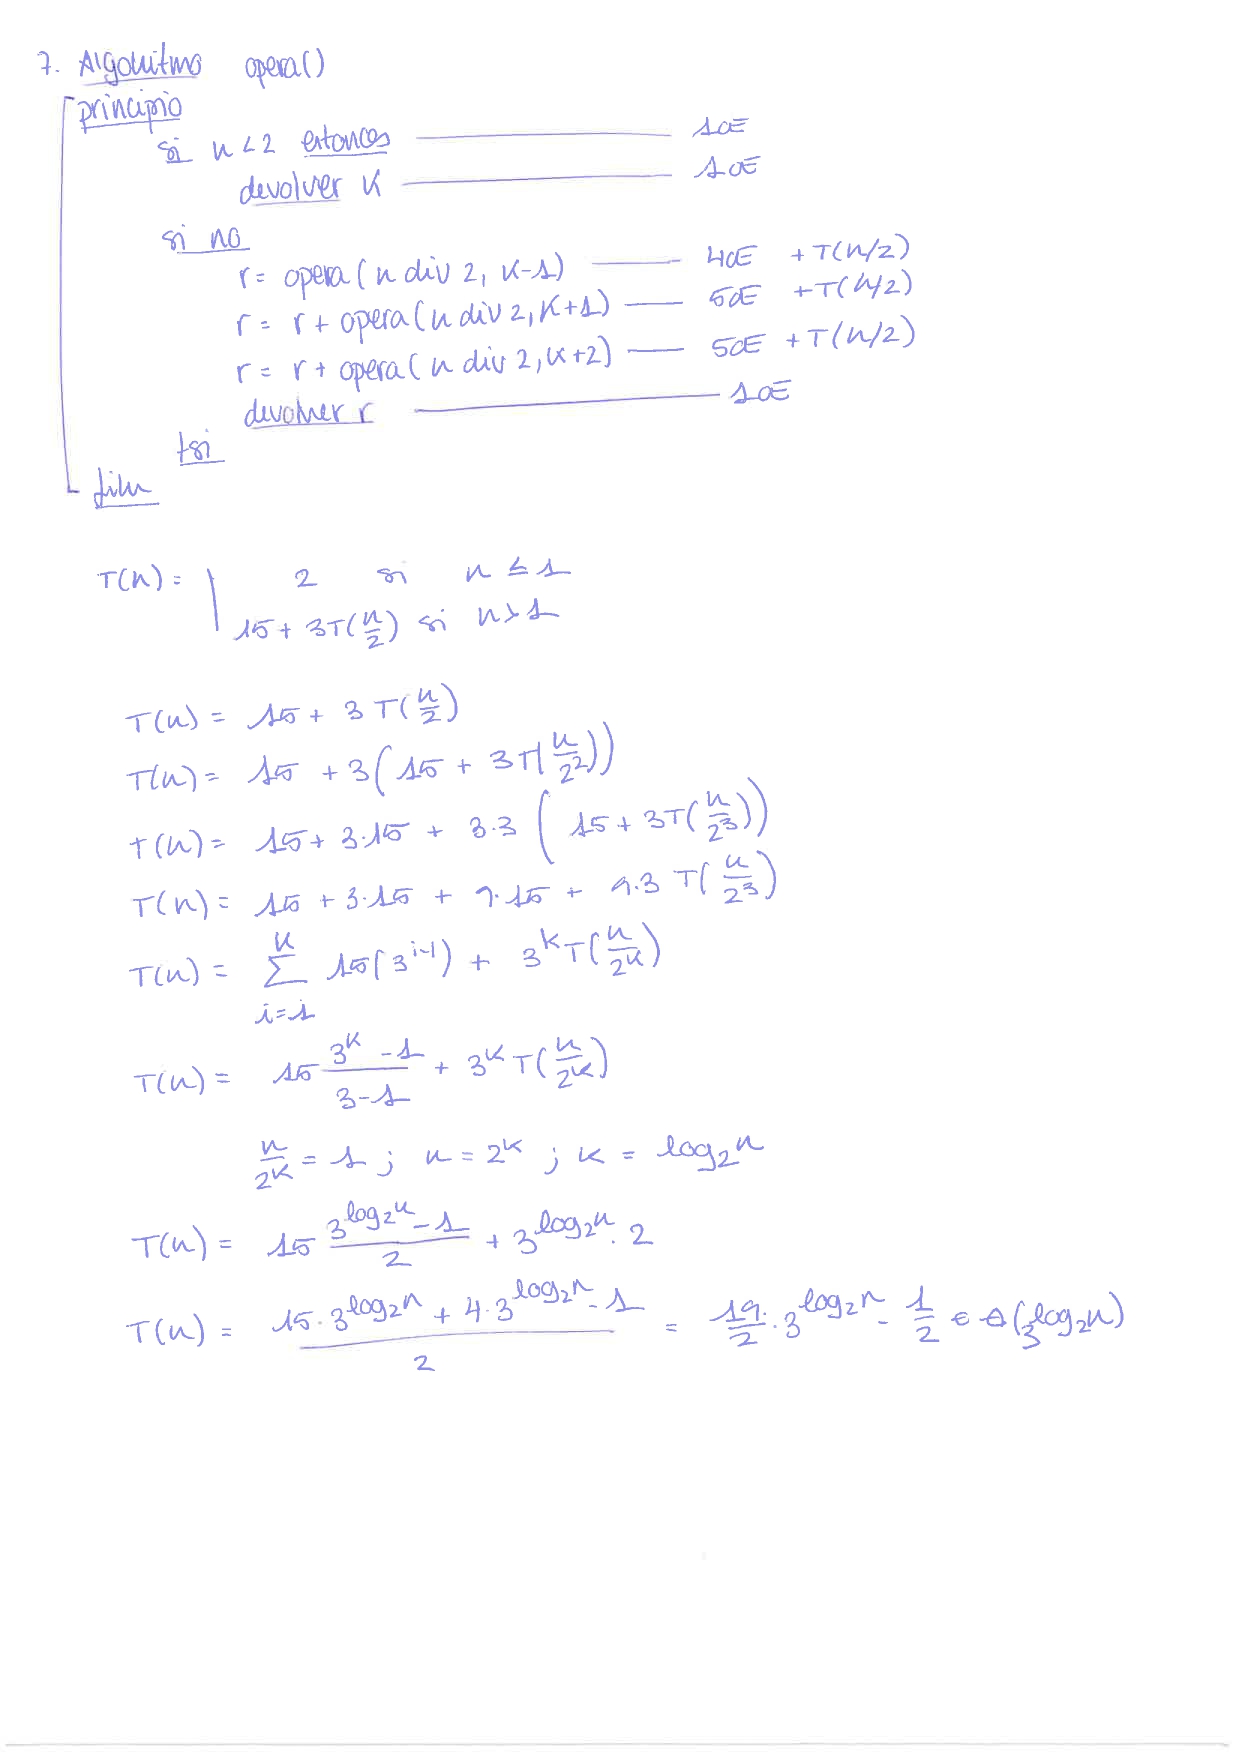 7. Algoritmo opera()
principio
si n < 2 entonces 1 OE
devolver K 1 OE
si no
r = opera(n div 2, K-1) 4 OE + T(n/2)
r = r + opera(n div 2, K+1) 5 OE + T(n/2)
r = r + opera(n div 2, K+2) 5 OE + T(n/2)
devolver r 1 OE
fsi
fin
T(n) = | 2 si n ≤ 1
15 + 3T(n/2) si n > 1
T(n) = 15 + 3T(n/2)
T(n) = 15 + 3(15 + 3T(n/2²))
T(n) = 15 + 3·15 + 3·3(15 + 3T(n/2³))
T(n) = 15 + 3·15 + 9·15 + 9·3 T(n/2³)
T(n) = Σ_{i=1}^{K} 15(3^{i-1}) + 3^K T(n/2^K)
T(n) = 15 (3^K - 1)/(3 - 1) + 3^K T(n/2^K)
n/2^K = 1 ; n = 2^K ; K = log₂n
T(n) = 15 (3^{log₂n} - 1)/2 + 3^{log₂n} · 2
T(n) = (15·3^{log₂n} + 4·3^{log₂n} - 1)/2 = 19/2 · 3^{log₂n} - 1/2 ∈ Θ(3^{log₂n})